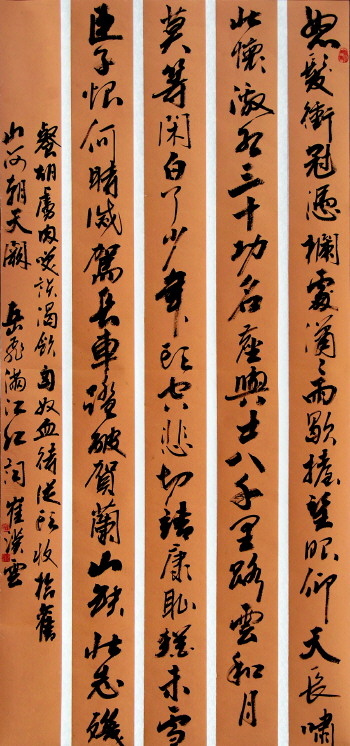 怒髮衝冠憑欄處瀟〻雨歇擡望眼仰天長嘯
壯懷激烈三十功名塵與土八千里路雲和月
莫等閑白了少年頭空悲切靖康恥猶未雪
臣子恨何時滅駕長車踏破賀蘭山缺壯志飢
餐胡虜肉笑談渴飲匈奴血待從頭收拾舊
山河朝天闕 岳飛滿江紅詞 崔漢雲